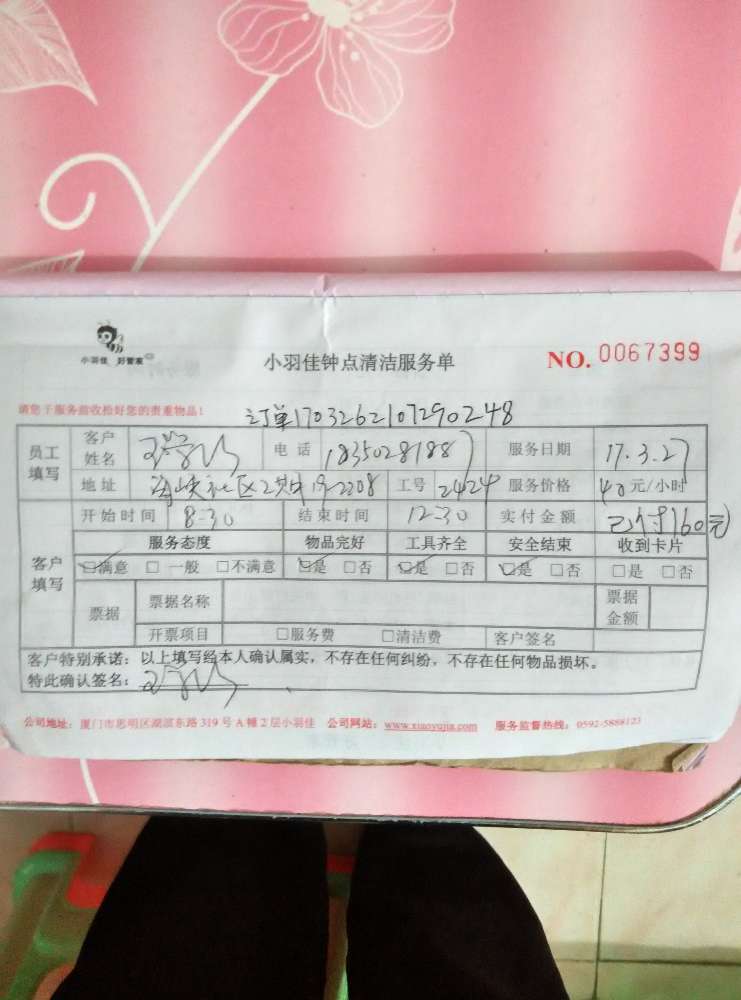 小羽佳 好管家
小羽佳钟点清洁服务单
NO. 0067399
请您于服务前收检好您的贵重物品!
订单1703262107290248
员工填写 客户姓名 电话 服务日期 17.3.27
地址 工号 2424 服务价格 40元/小时
客户填写 开始时间 8-30 结束时间 12-30 实付金额 已付160元
服务态度 物品完好 工具齐全 安全结束 收到卡片
☑满意 □一般 □不满意 ☑是 □否 ☑是 □否 ☑是 □否 □是 □否
票据 票据名称 票据金额
开票项目 □服务费 □清洁费 客户签名
客户特别承诺:以上填写经本人确认属实,不存在任何纠纷,不存在任何物品损坏。
特此确认签名:
公司地址:厦门市思明区湖滨东路319号A幢2层小羽佳 公司网站:www.xiaoyujia.com 服务监督热线:0592-5888123